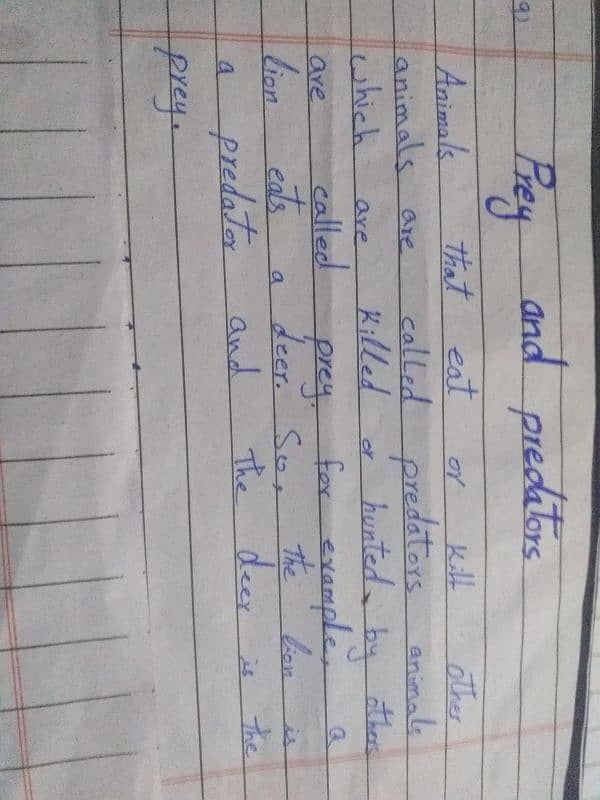 9)
Prey and predators
Animals that eat or kill other
animals are called predators animals
which are killed or hunted by others
are called prey. for example, a
lion eats a deer. So, the lion is
a predator and the deer is the
prey.